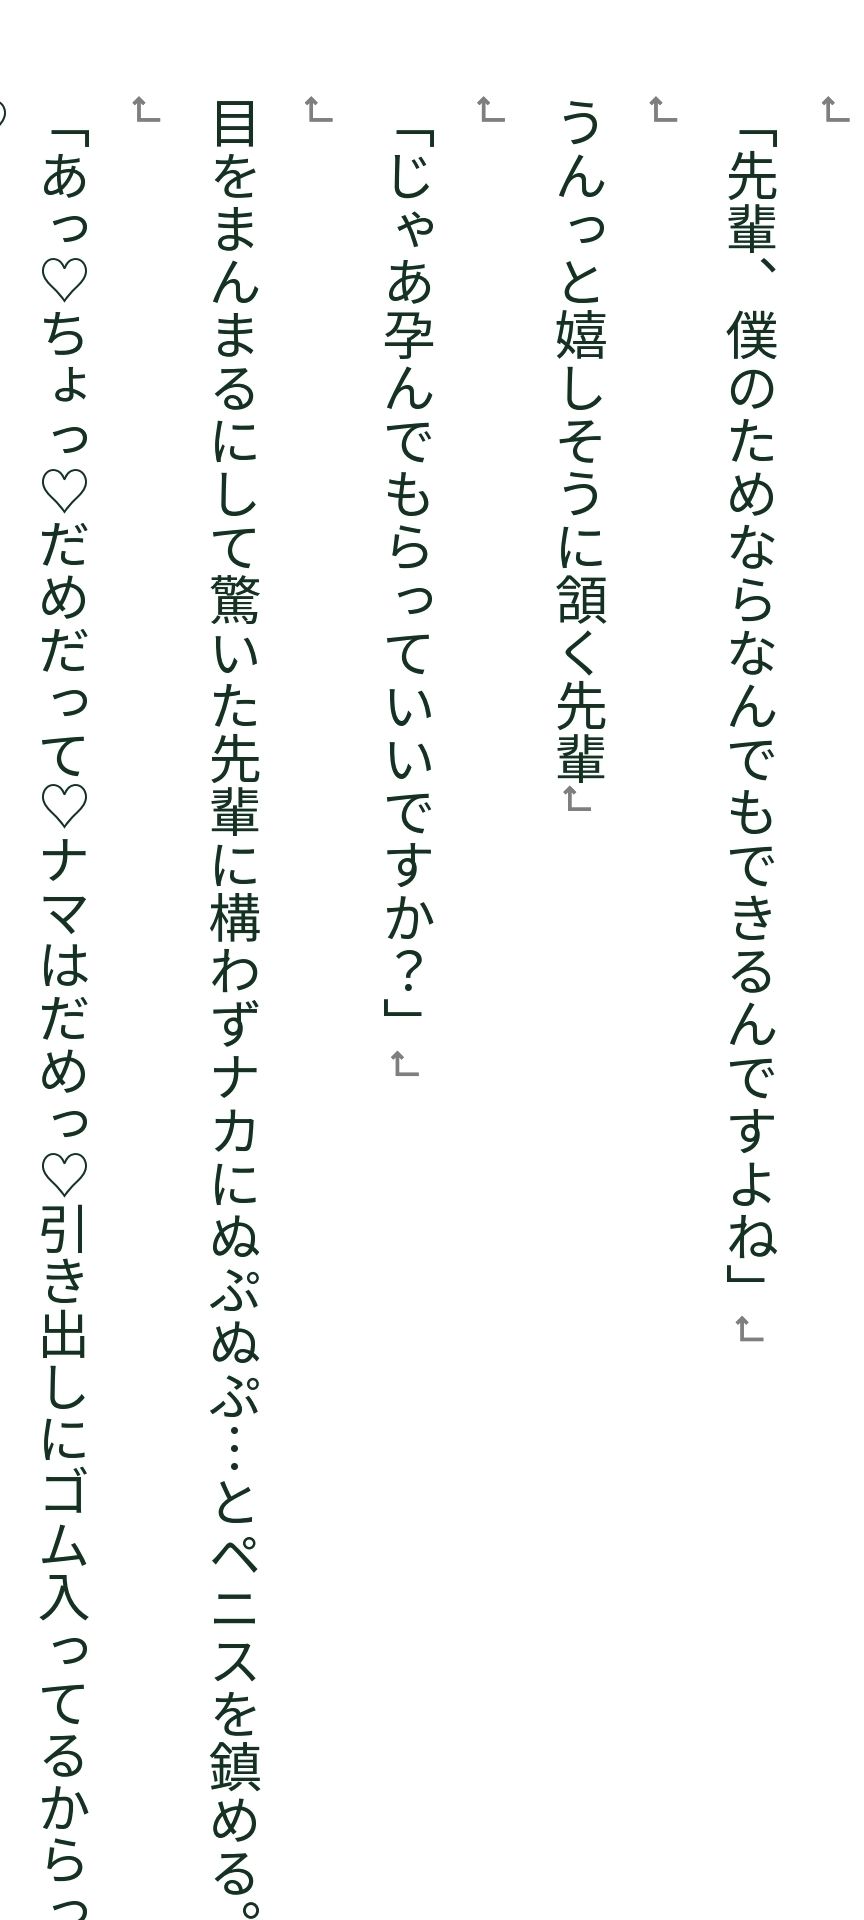 「先輩、僕のためならなんでもできるんですよね」
うんっと嬉しそうに頷く先輩
「じゃあ孕んでもらっていいですか？」
目をまんまるにして驚いた先輩に構わずナカにぬぷぬぷ…とペニスを鎮める。
「あっ♡ちょっ♡だめだって♡ナマはだめっ♡引き出しにゴム入ってるからっ